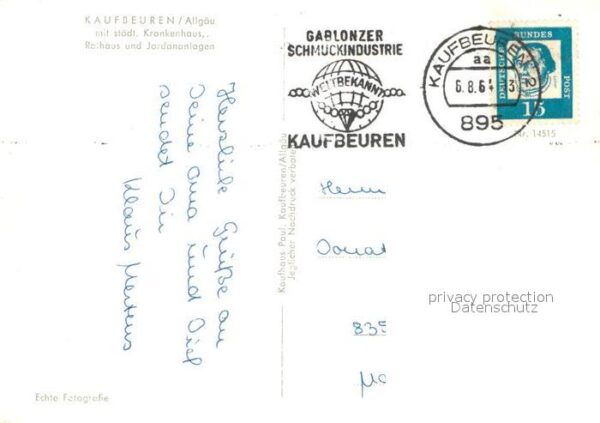 KAUFBEUREN/Allgäu
mit städt. Krankenhaus,
Rathaus und Jordananlagen
GABLONZER
SCHMUCKINDUSTRIE
WELTBEKANNT
KAUFBEUREN
KAUFBEUREN 2
aa
6.8.64
895
DEUTSCHE BUNDESPOST
15
Nr. 14515
Herzliche Grüße an
Deine Oma und Dich
sendet Dir
Klaus Mertens
Kaufhaus Paul, Kaufbeuren/Allgäu
Jeglicher Nachdruck verboten
Herrn
Donat
835
privacy protection
Datenschutz
Echte Fotografie